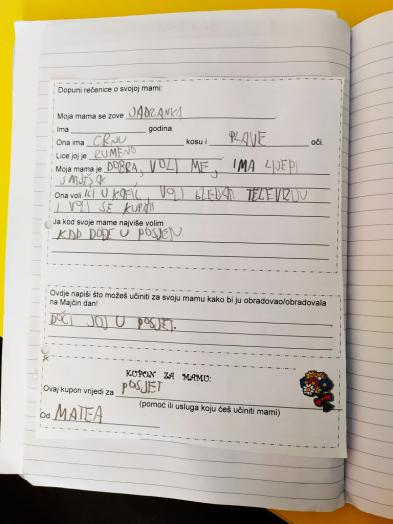 Dopuni rečenice o svojoj mami:
Moja mama se zove JADRANKA
Ima godina.
Ona ima CRNU kosu i PLAVE oči.
Lice joj je RUMENO
Moja mama je DOBRA, VOLI ME, IMA LIJEPI
SMJEŠAK
Ona voli ICI U KAFIĆ, VOLI GLEDATI TELEVIZIJU
I VOLI SE KUPATI
Ja kod svoje mame najviše volim
KAD DOĐE U POSJETU
Ovdje napiši što možeš učiniti za svoju mamu kako bi ju obradovao/obradovala
na Majčin dan!
DOĆI JOJ U POSJET.
KUPON ZA MAMU:
Ovaj kupon vrijedi za POSJET
(pomoć ili usluga koju ćeš učiniti mami)
Od MATEA